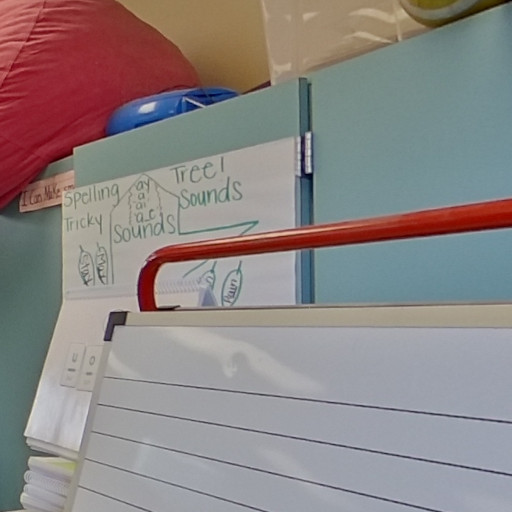 I Can Make
Spelling
Tricky
ay
a
ai
a_e
Sounds
Tree!
Sounds
Rain